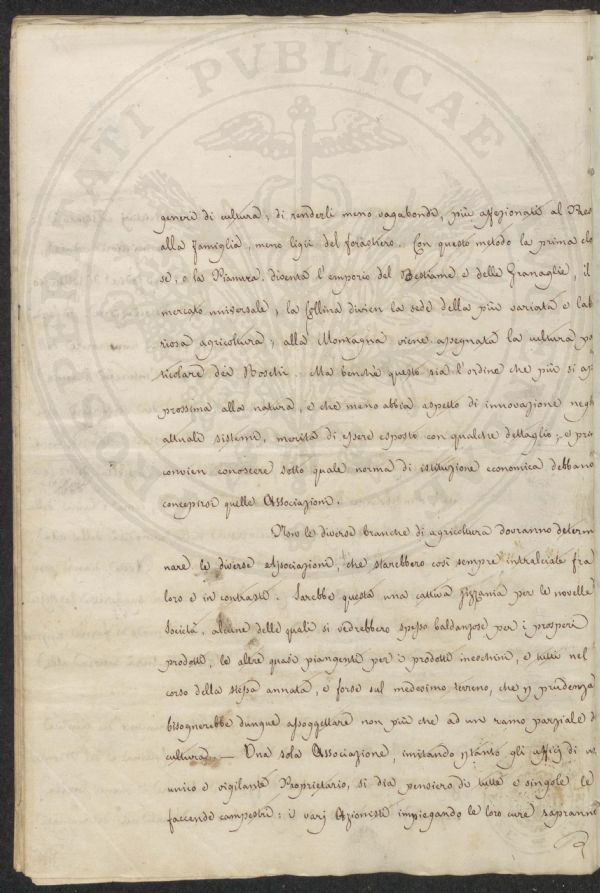 PROSPERITATI PVBLICAE
genere di cultura, di renderli meno vagabondi, più affezionati al
alla famiglia, meno ligii del foraghero. Con questo metodo la prima
se, o la Pianura, diventa l'emporio del Bestiame e delle Granaglie, il
mercato universale, la Collina divien la sede della più variata e lab
riosa agricoltura, alla Montagna viene assegnata la cultura pa
ticolare dei Boschi. Ma benchè questo sia l'ordine che più si ap
prossima alla natura, e che meno abbia aspetto di innovazione negli
attuali sistemi, merita di essere esposto con qualche dettaglio, e pria
convien conoscere sotto quale norma di istituzione economica debbano
concepirsi quelle Associazioni.
Non le diverse branche di agricoltura dovranno determi
nare le diverse Associazioni, che starebbero così sempre intralciate fra
loro e in contrasti. Sarebbe questa una cattiva Zizzania per le novelle
Società, alcune delle quali si vedrebbero spesso baldanzose per i prosperi
prodotti, le altre quasi piangenti per i prodotti meschini, e tutti nel
corso della stessa annata, e forse sul medesimo terreno, che p prudenza
bisognerebbe dunque assoggettare non più che ad un ramo parziale di
cultura. — Una sola Associazione, imitando ptanto gli uffizj di un
unico e vigilante Proprietario, si dia pensiero di tutte e singole le
faccende campestri: i varj Azionisti impiegando le loro cure sapranno